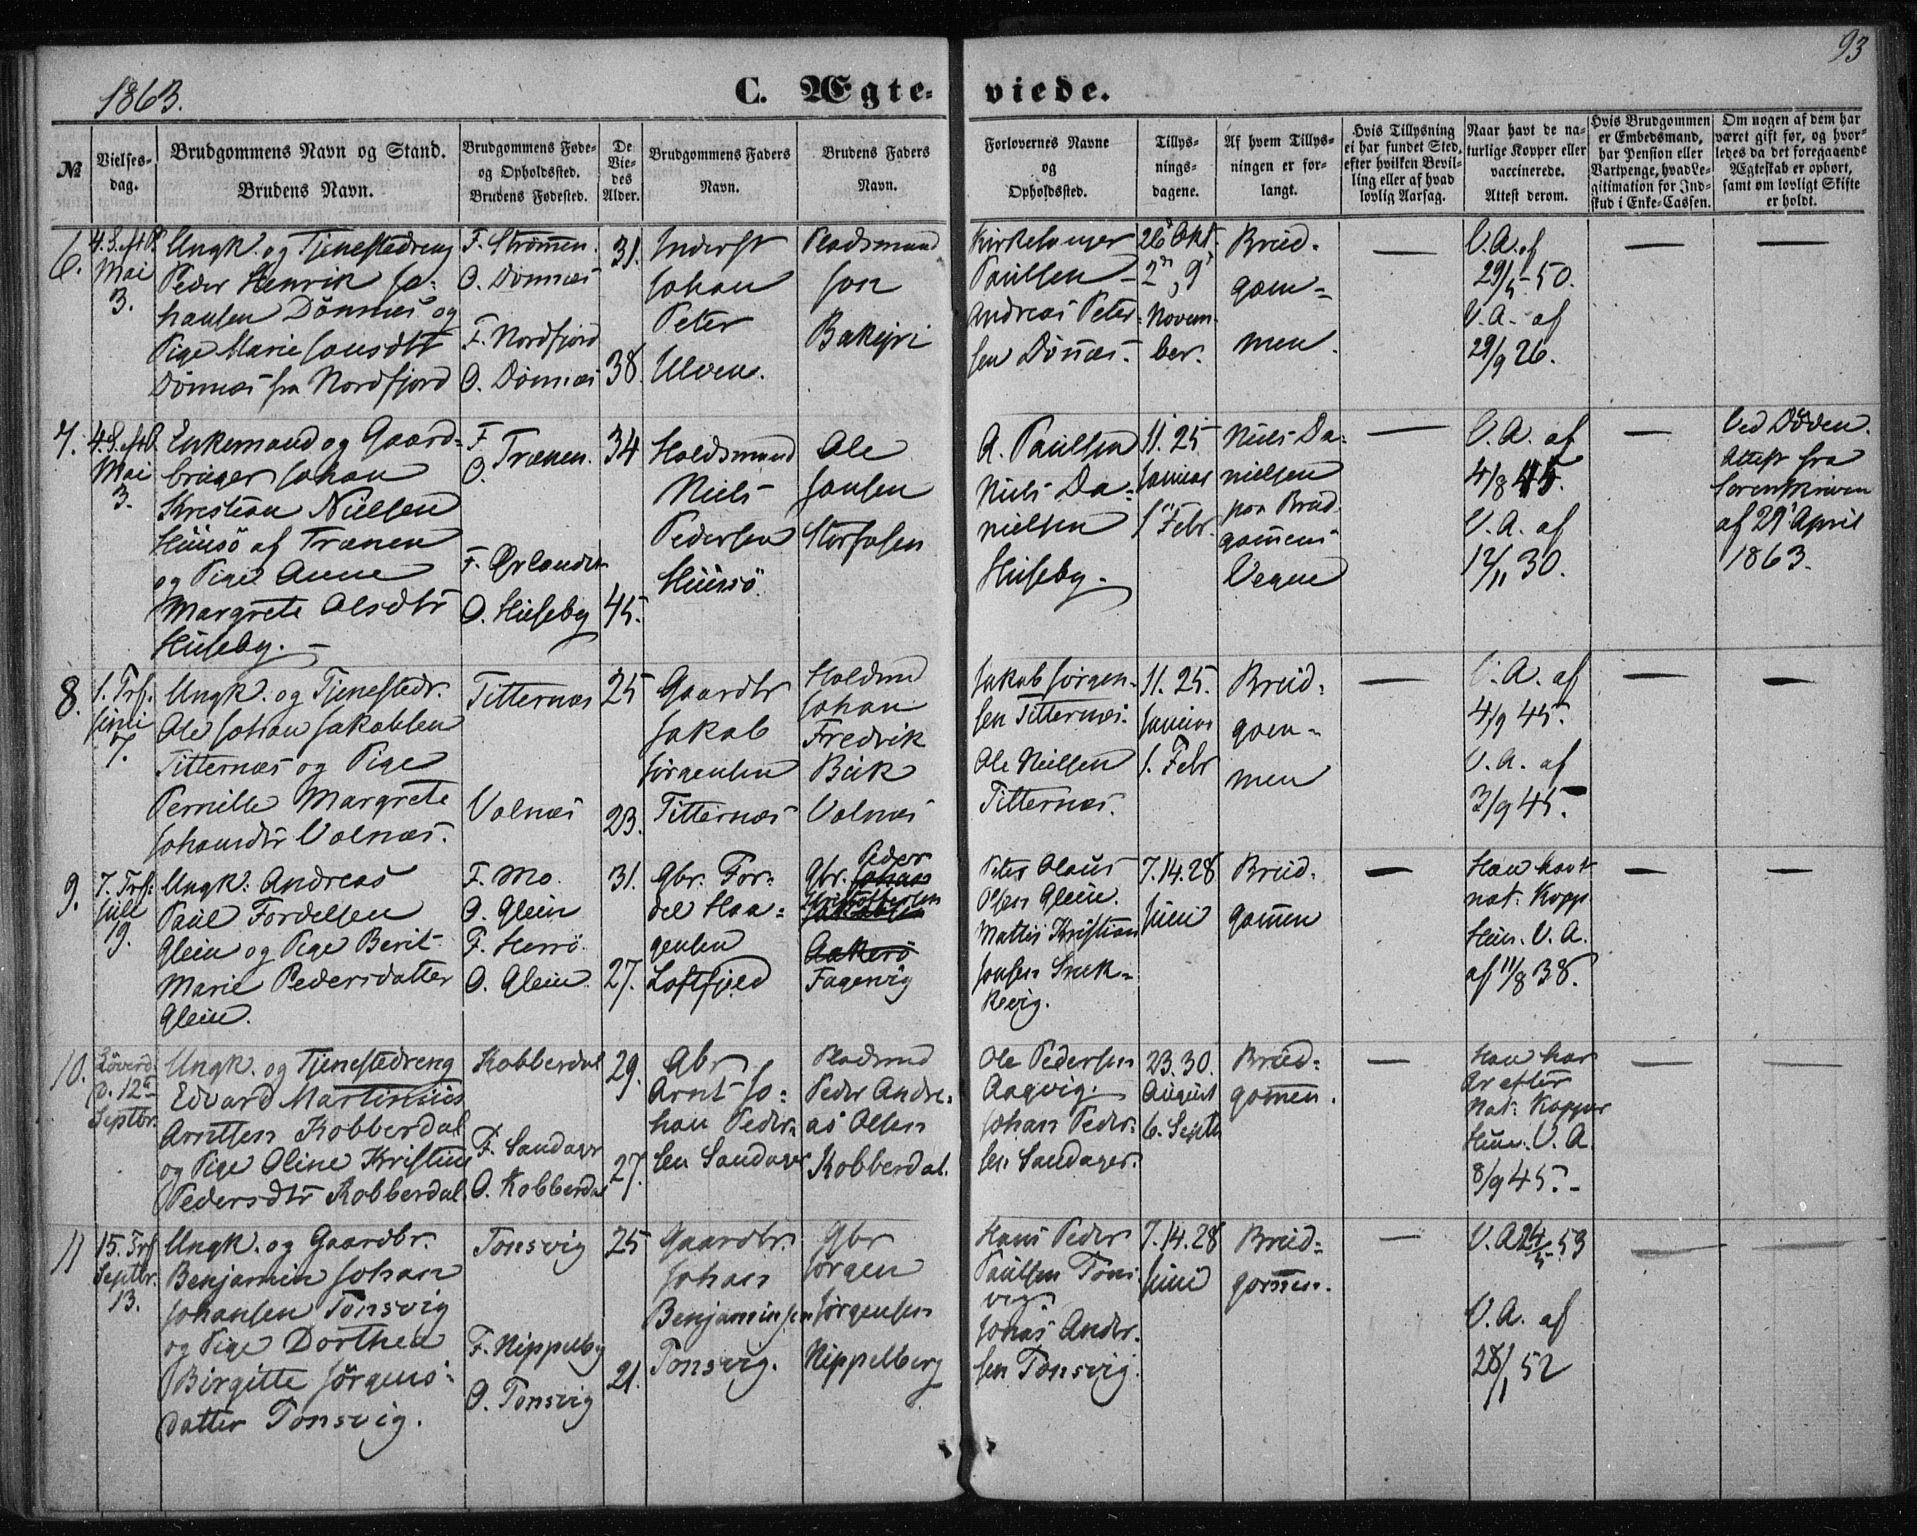 93
1863.
C. Ægteviede.
№
Vielses-
dag.
Brudgommens Navn og Stand.
Brudens Navn.
Brudgommens Føde-
og Opholdssted.
Brudens Fødested.
De
Vie-
des
Alder.
Brudgommens Faders
Navn.
Brudens Faders
Navn.
Forlovernes Navne
og
Opholdssted.
Tillys-
nings-
dagene.
Af hvem Tillys-
ningen er for-
langt.
Hvis Tillysning
ei har fundet Sted,
efter hvilken Bevil-
ling eller af hvad
lovlig Aarsag.
Naar havt de na-
turlige Kopper eller
vaccinerede.
Attest derom.
Hvis Brudgommen
er Embedsmand,
har Pension eller
Vartpenge, hvad Le-
gitimation for Ind-
skud i Enke-Cassen.
Om nogen af dem har
været gift før, og hvor-
ledes da det foregaaende
Ægteskab er ophørt,
samt om lovligt Skifte
er holdt.
6.
Mai
3.
Ungk. og Tjenestedreng
Peder Henrik Jo-
hansen Dönnæs og
Pige Marie Jonsdtr
Dönnæs fra Nordfjord
F. Strømen.
O. Dönnæs
F. Nordfjord
O. Dönnæs
31.
38.
Inderst
Johan
Peter
Ulven.
Pladsmand
Jon
Bakejri
Kirkesanger
Paulsen –
Andreas Peter-
sen Dönæs.
26' Okt.
2den 9'
Novem-
ber.
Brud-
gom-
men.
—
V. A. af
29/5 50.
V. A. af
29/9 26.
—
—
7.
Mai
3.
Enkemand og Gaard-
bruger Johan
Kristian Nielsen
Huusö af Trænen
og Pige Anne
Margrete Olsdtr
Huseby. –
F.
O. Trænen.
F. Ørlandet
O. Huseby
34
45.
Holdsmand
Niels
Pedersen
Huusö.
Ole
Jansen
Storfosen
A. Paulsen
Niels Da-
nielsen
Huseby.
11. 25
Januar
1' Febr.
Niels Da-
nielsen
paa Brud-
gomens
Vegne
—
V. A. af
4/8 45.
V. A. af
12/11 30.
—
Ved Døden.
Attest fra
Sorenskriven
af 29' April
1863.
8.
1. Trf.
Juni
7.
Ungk. og Tjenestedr.
Ole Johan Jakobsen
Titternæs og Pige
Pernille Margrete
Johansdtr Valnæs.
Titternæs
Valnæs
25
23.
Gaardbr
Jakob
Jörgensen
Titternæs
Holdmd
Johan
Fredrik
Bek
Valnæs
Jakob Jörgen-
sen Titternæs.
Ole Nielsen
Titternæs.
11. 25.
Januar
1. Febr
Brud-
gom-
men
—
V. A. af
4/9 45.
V. A. af
3/9 45.
—
—
9.
7. Trf:
Juli
19.
Ungk: Andreas
Paul Fordelsen
Glein og Pige Berit
Marie Pedersdatter
Glein.
F. Mo.
O. Glein
F. Herrö.
O. Glein.
31.
27.
Gbr. For-
del Haa-
gensen
Loftfjeld
Peder
Gbr. Johan
Kristoffersen
Jakobsen
Aakerö
Fagervig
Peter Olaus
Olsen Glein.
Mattis Kristian
Jonsen Snek-
kevig.
7. 14. 28
Juni
Brud-
gomen
—
Han havt
nat: Kopp.
Hun. V. A.
af 11/8 38.
—
—
10.
Løverd.
d. 12te
Septbr.
Ungk. og Tjenestedreng
Edvard Martinus
Arntsen Kobberdal
og Pige Oline Kristine
Pedersdtr Kobberdal.
Kobberdal
F. Sandager
O. Kobberdal
29.
27.
Gbr
Arnt Jo-
han Peder-
sen Sandager
Pladsmd
Peder Andre-
as Olsen
Kobberdal.
Ole Pedersen
Aagvig.
Johan Peder-
sen Sandager.
23. 30.
August
6. Septbr
Brud-
gomen.
—
Han har
Ar efter
Nat: Kopper
Hun. V. A.
8/9 45. –
—
—
11
15. Trf
Septbr.
13.
Ungk. og Gaardbr.
Benjamin Johan
Johansen Tonsvig
og Pige Dorthea
Birgitte Jörgens-
datter Tonsvig.
Tonsvig
F. Nippelby
O. Tonsvig
25
21.
Gaardbr.
Johan
Benjaminsen
Tonsvig.
Gbr
Jörgen
Jörgensen
Nippelberg
Hans Peder
Paulsen Tons-
vig.
Jonas Ander-
sen Tonsvig.
7. 14. 28
Juni
Brud-
gomen.
—
V. A 24/5 53
V. A. af
28/1 52
—
—